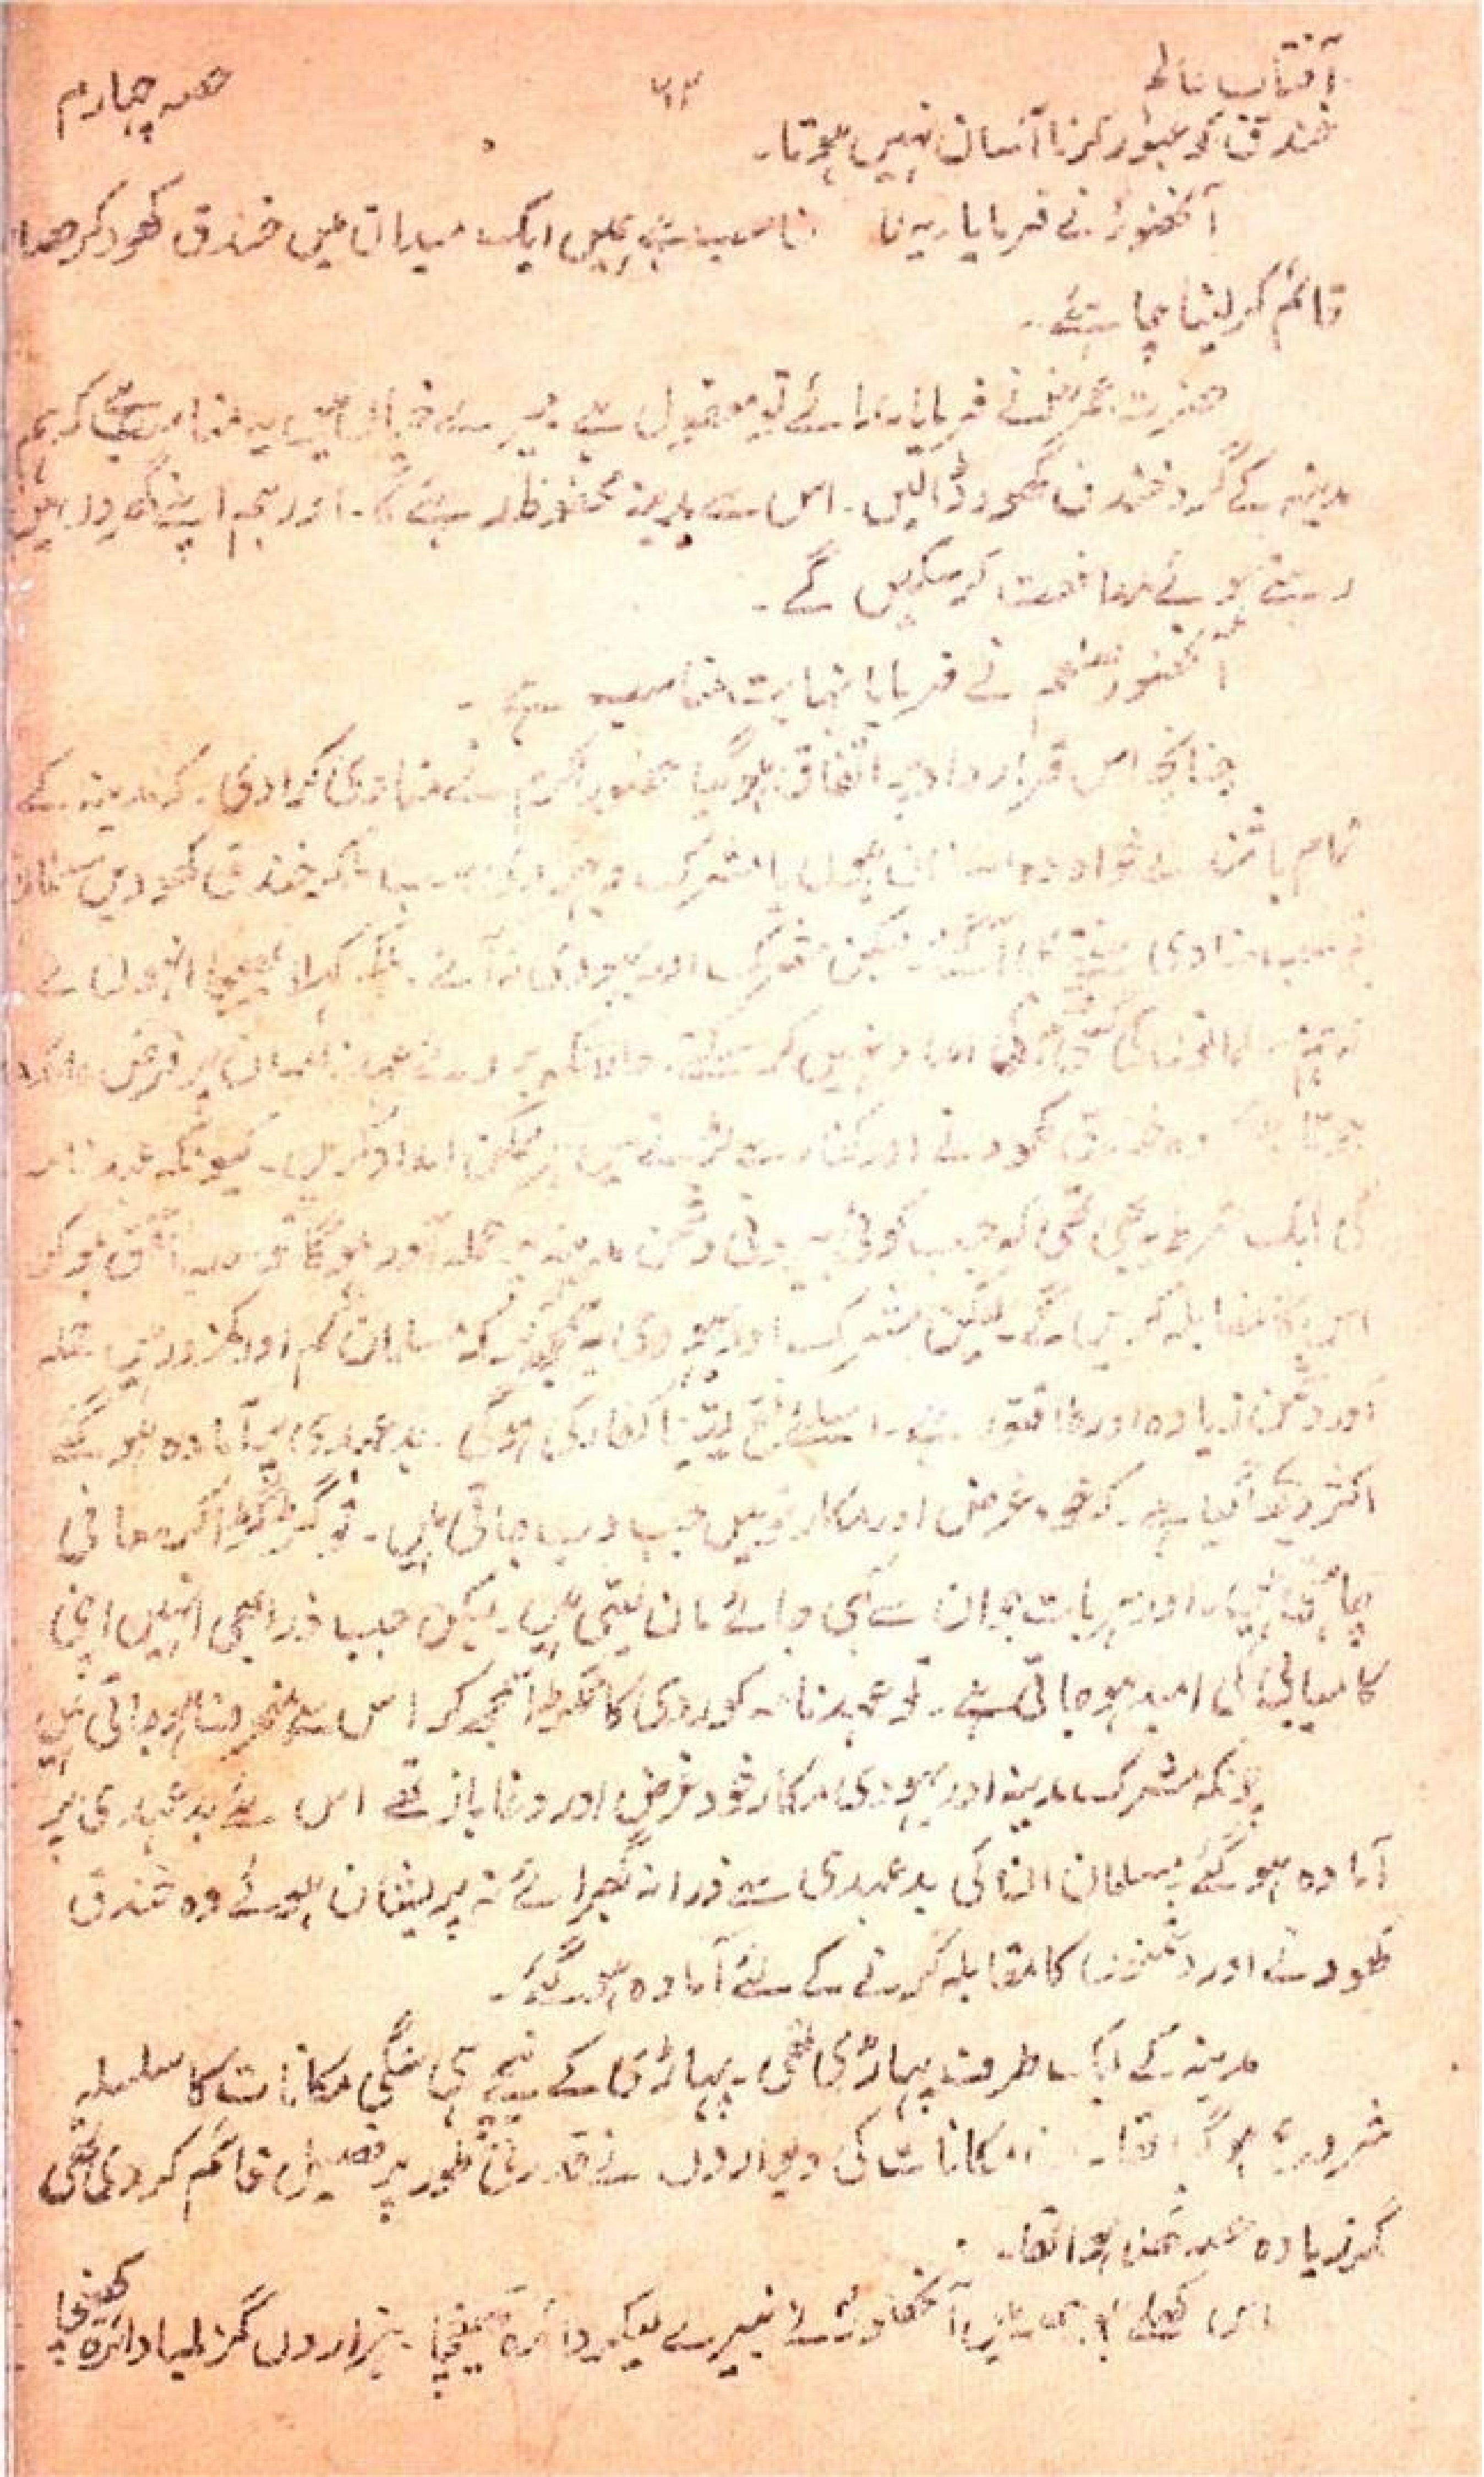 آفتاب عالم
۶۳
حصہ چہارم
خندق کو عبور کرنا آسان نہیں ہوتا۔
آنحضورؐ نے فرمایا۔ یہ نا مناسب ہے ہمیں ایک میدان میں خندق کھود کر
قائم کر لینا چاہئے۔
حضرت عمرؓ نے فرمایا۔ رائے تو معقول ہے میرے خیال میں یہ مناسب ہے کہ ہم
مدینہ کے گرد خندق کھود ڈالیں۔ اس سے مدینہ محفوظ رہے گا۔ اور ہم اپنے گھروں میں
رہتے ہوئے مدافعت کر سکیں گے۔
آنحضور صلعم نے فرمایا نہایت مناسب ہے۔
چنانچہ اس قرارداد پر اتفاق ہو گیا حضور اکرم نے منادی کرا دی۔ کہ مدینہ کے
تمام باشندے خواہ وہ مسلمان ہوں یا مشرک و یہودی سب مل کر خندق کھودیں مسلمان
منادی سنتے ہی آ گئے لیکن مشرک اور یہودی نہ آئے۔ بلکہ کہلا بھیجا انہوں نے
کی امداد نہیں کر سکتے۔ حالانکہ بروئے عہد نامہ ان پر فرض عائد
ہوتا تھا کہ وہ خندق کھودنے اور کفار سے لڑنے میں ہر ممکن امداد کریں۔ کیونکہ عہد نامہ
کی ایک شرط یہ بھی تھی کہ جب کوئی بیرونی دشمن مدینہ پر حملہ آور ہو گا تو سب متفق ہو کر
اس کا مقابلہ کریں گے۔ لیکن مشرک اور یہودی یہ سمجھ کر کہ مسلمان کم اور کمزور ہیں
اور دشمن زیادہ اور طاقتور ہے۔ اسلئے فتح یقیناً کفار کی ہوگی۔ بدعہدی پر آمادہ ہو گئے
اکثر دیکھا گیا ہے۔ کہ خود غرض اور مکار قومیں جب دب جاتی ہیں۔ تو گڑگڑا کر معافی
چاہتی ہیں۔ اور ہر بات جو ان سے کہی جائے مان لیتی ہیں۔ لیکن جب ذرا بھی انہیں اپنی
کامیابی کی امید ہو جاتی ہے۔ تو عہد نامہ کو ردی کا ٹکڑا سمجھ کر اس سے منحرف ہو جاتی ہیں
چونکہ مشرک مدینہ اور یہودی مکار خود غرض اور دغا باز تھے اس لئے بدعہدی پر
آمادہ ہو گئے مسلمان ان کی بدعہدی سے ذرا نہ گھبرائے نہ پریشان ہوئے وہ خندق
کھودنے اور دشمنوں کا مقابلہ کرنے کے لئے آمادہ ہو گئے۔
مدینہ کے ایک طرف پہاڑی تھی۔ پہاڑی کے نیچے ہی سنگی مکانات کا سلسلہ
شروع ہو گیا تھا۔ ان مکانات کی دیواروں نے قدرتی طور پر فصیل قائم کر دی تھی
مگر زیادہ حصہ کھلا ہوا تھا۔
اس کھلے ہوئے آنحضورؐ نے نیزے سے لیکر دائرہ کھینچا۔ ہزاروں گز لمبا دائرہ کھینچا